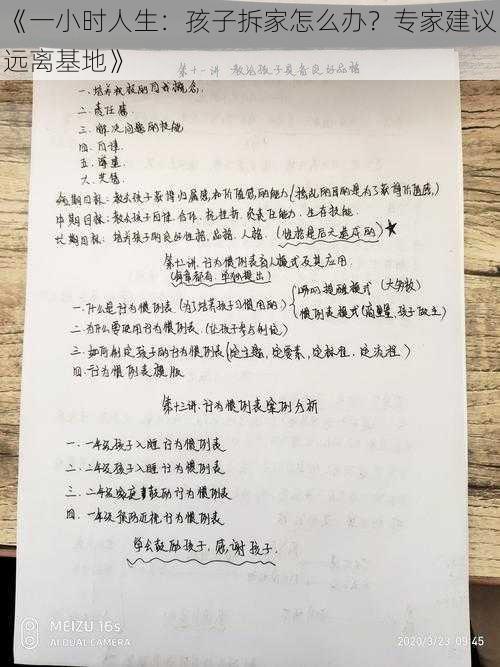 《一小时人生：孩子拆家怎么办？专家建议
远离基地》
第十一讲 教给孩子具备良好品格
一.培养积极的自我概念.
二.责任感
三.解决问题的技能
四.自律
五.尊重
六.共情
短期目标：教会孩子获得归属感和价值感的能力(捣乱的目的是为了获得价值感)
中期目标：教会孩子自律.合作.抗挫折.负责任能力.生存技能.
长期目标：培养孩子的良好性格.品格.人格.(性格是后天养成的)
第十二讲.行为惯例表育人模式及其应用.
一.什么是行为惯例表(为了培养孩子习惯用的)
唠叨提醒模式 (大多数)
惯例表模式(高质量，孩子做主)
二.为什么要使用行为惯例表.
三.如何制定孩子的行为惯例表(定主题，定要素，定标准，定流程)
四.行为惯例表模版
第十三讲.行为惯例表案例分析
一.一年级孩子入睡行为惯例表
二.二年级孩子入睡行为惯例表
三.二年级家庭鼓励行为惯例表
四.一年级预防近视行为惯例表
学会鼓励孩子.感谢孩子.
MEIZU 16s
AI DUAL CAMERA
2020/3/23 09:45